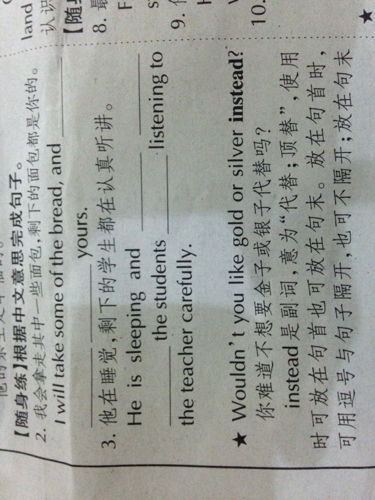 【随身练】根据中文意思完成句子。
2. 我会拿走其中一些面包,剩下的面包都是你的。
I will take some of the bread, and
yours.
3. 他在睡觉,剩下的学生都在认真听讲。
He is sleeping and
the students listening to
the teacher carefully.
★ Wouldn't you like gold or silver instead?
你难道不想要金子或银子代替吗?
instead是副词,意为“代替;顶替”,使用
时可放在句首也可放在句末。放在句首时,
可用逗号与句子隔开,也可不隔开;放在句末
land
认识
【随身
8.
9.
10.
★